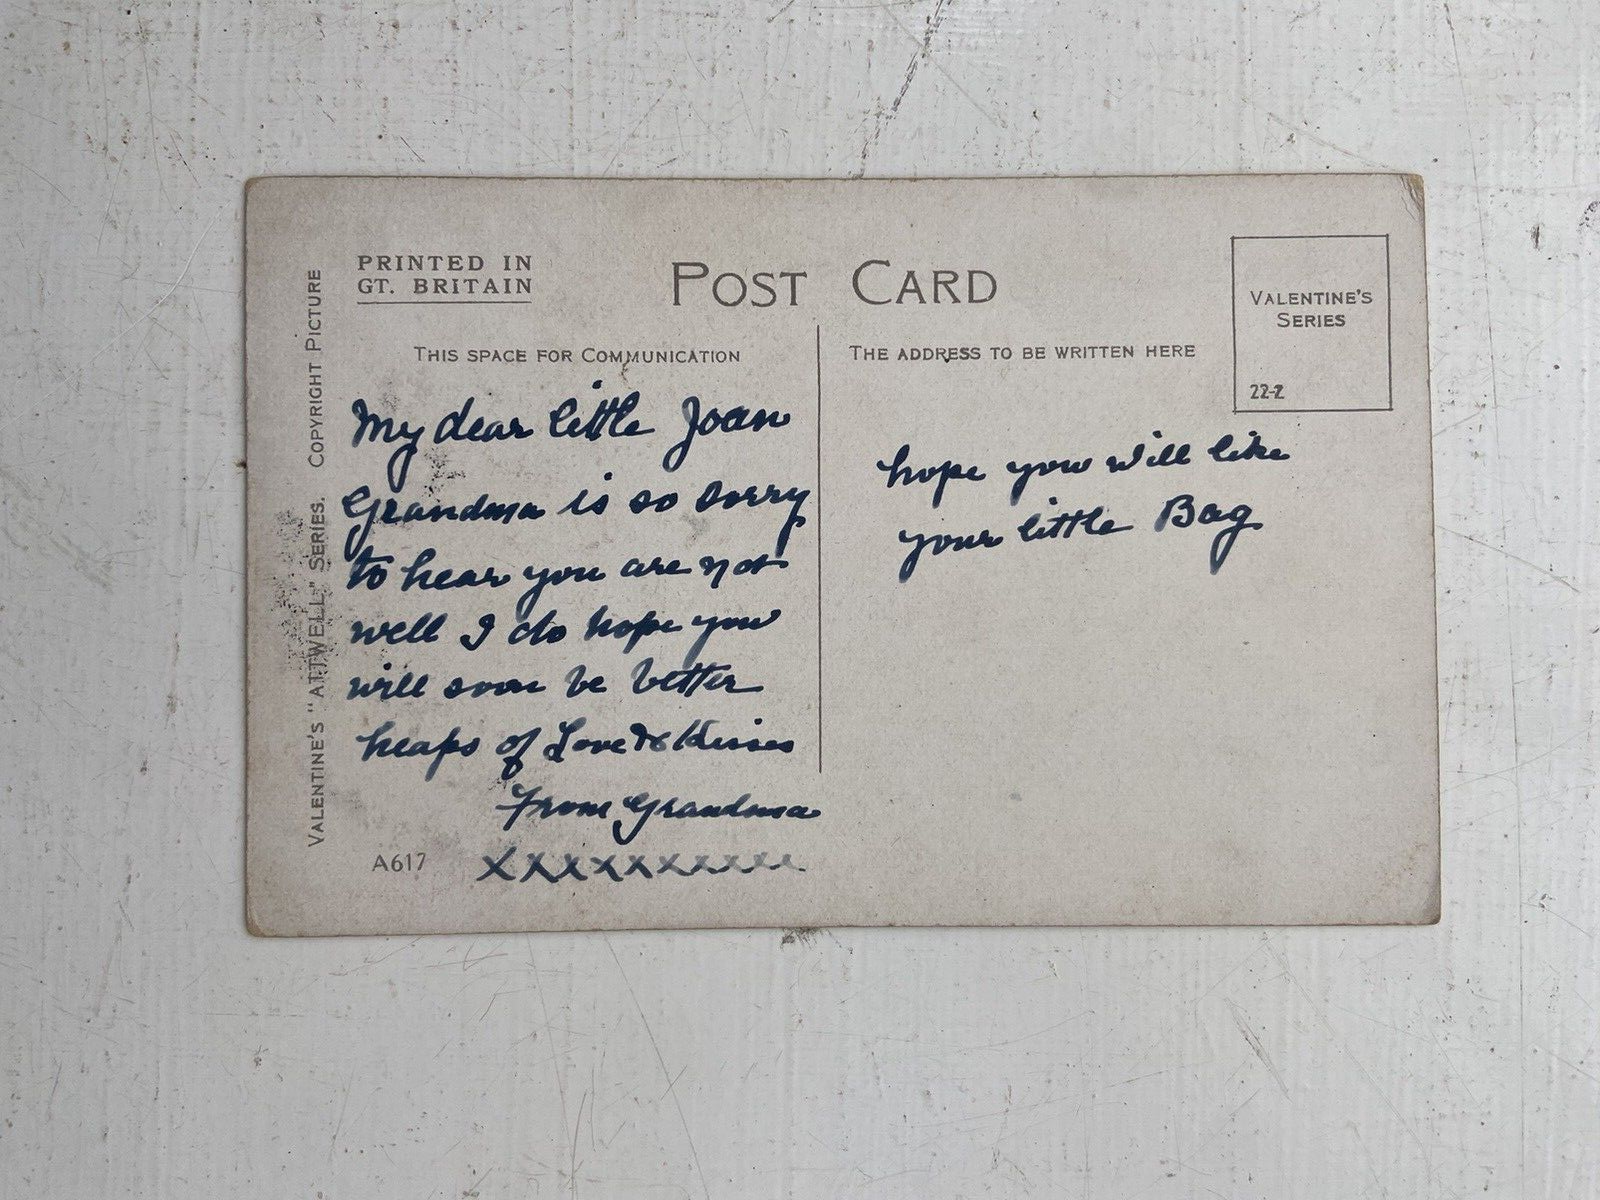 PRINTED IN
GT. BRITAIN
POST CARD
VALENTINE'S
SERIES
22-Z
THIS SPACE FOR COMMUNICATION
THE ADDRESS TO BE WRITTEN HERE
My dear little Joan
Grandma is so sorry
to hear you are not
well I do hope you
will soon be better
heaps of Love & Kisses
From Grandma
xxxxxxxxxx
hope you will like
your little Bag
A617
VALENTINE'S "ATTWELL" SERIES. COPYRIGHT PICTURE